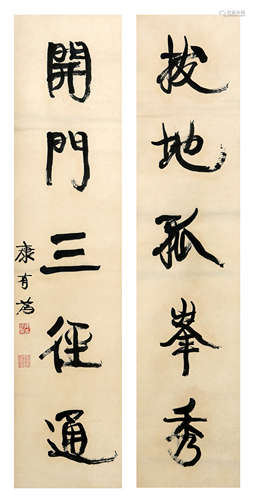 拔地孤峯秀
開門三徑通
康有為